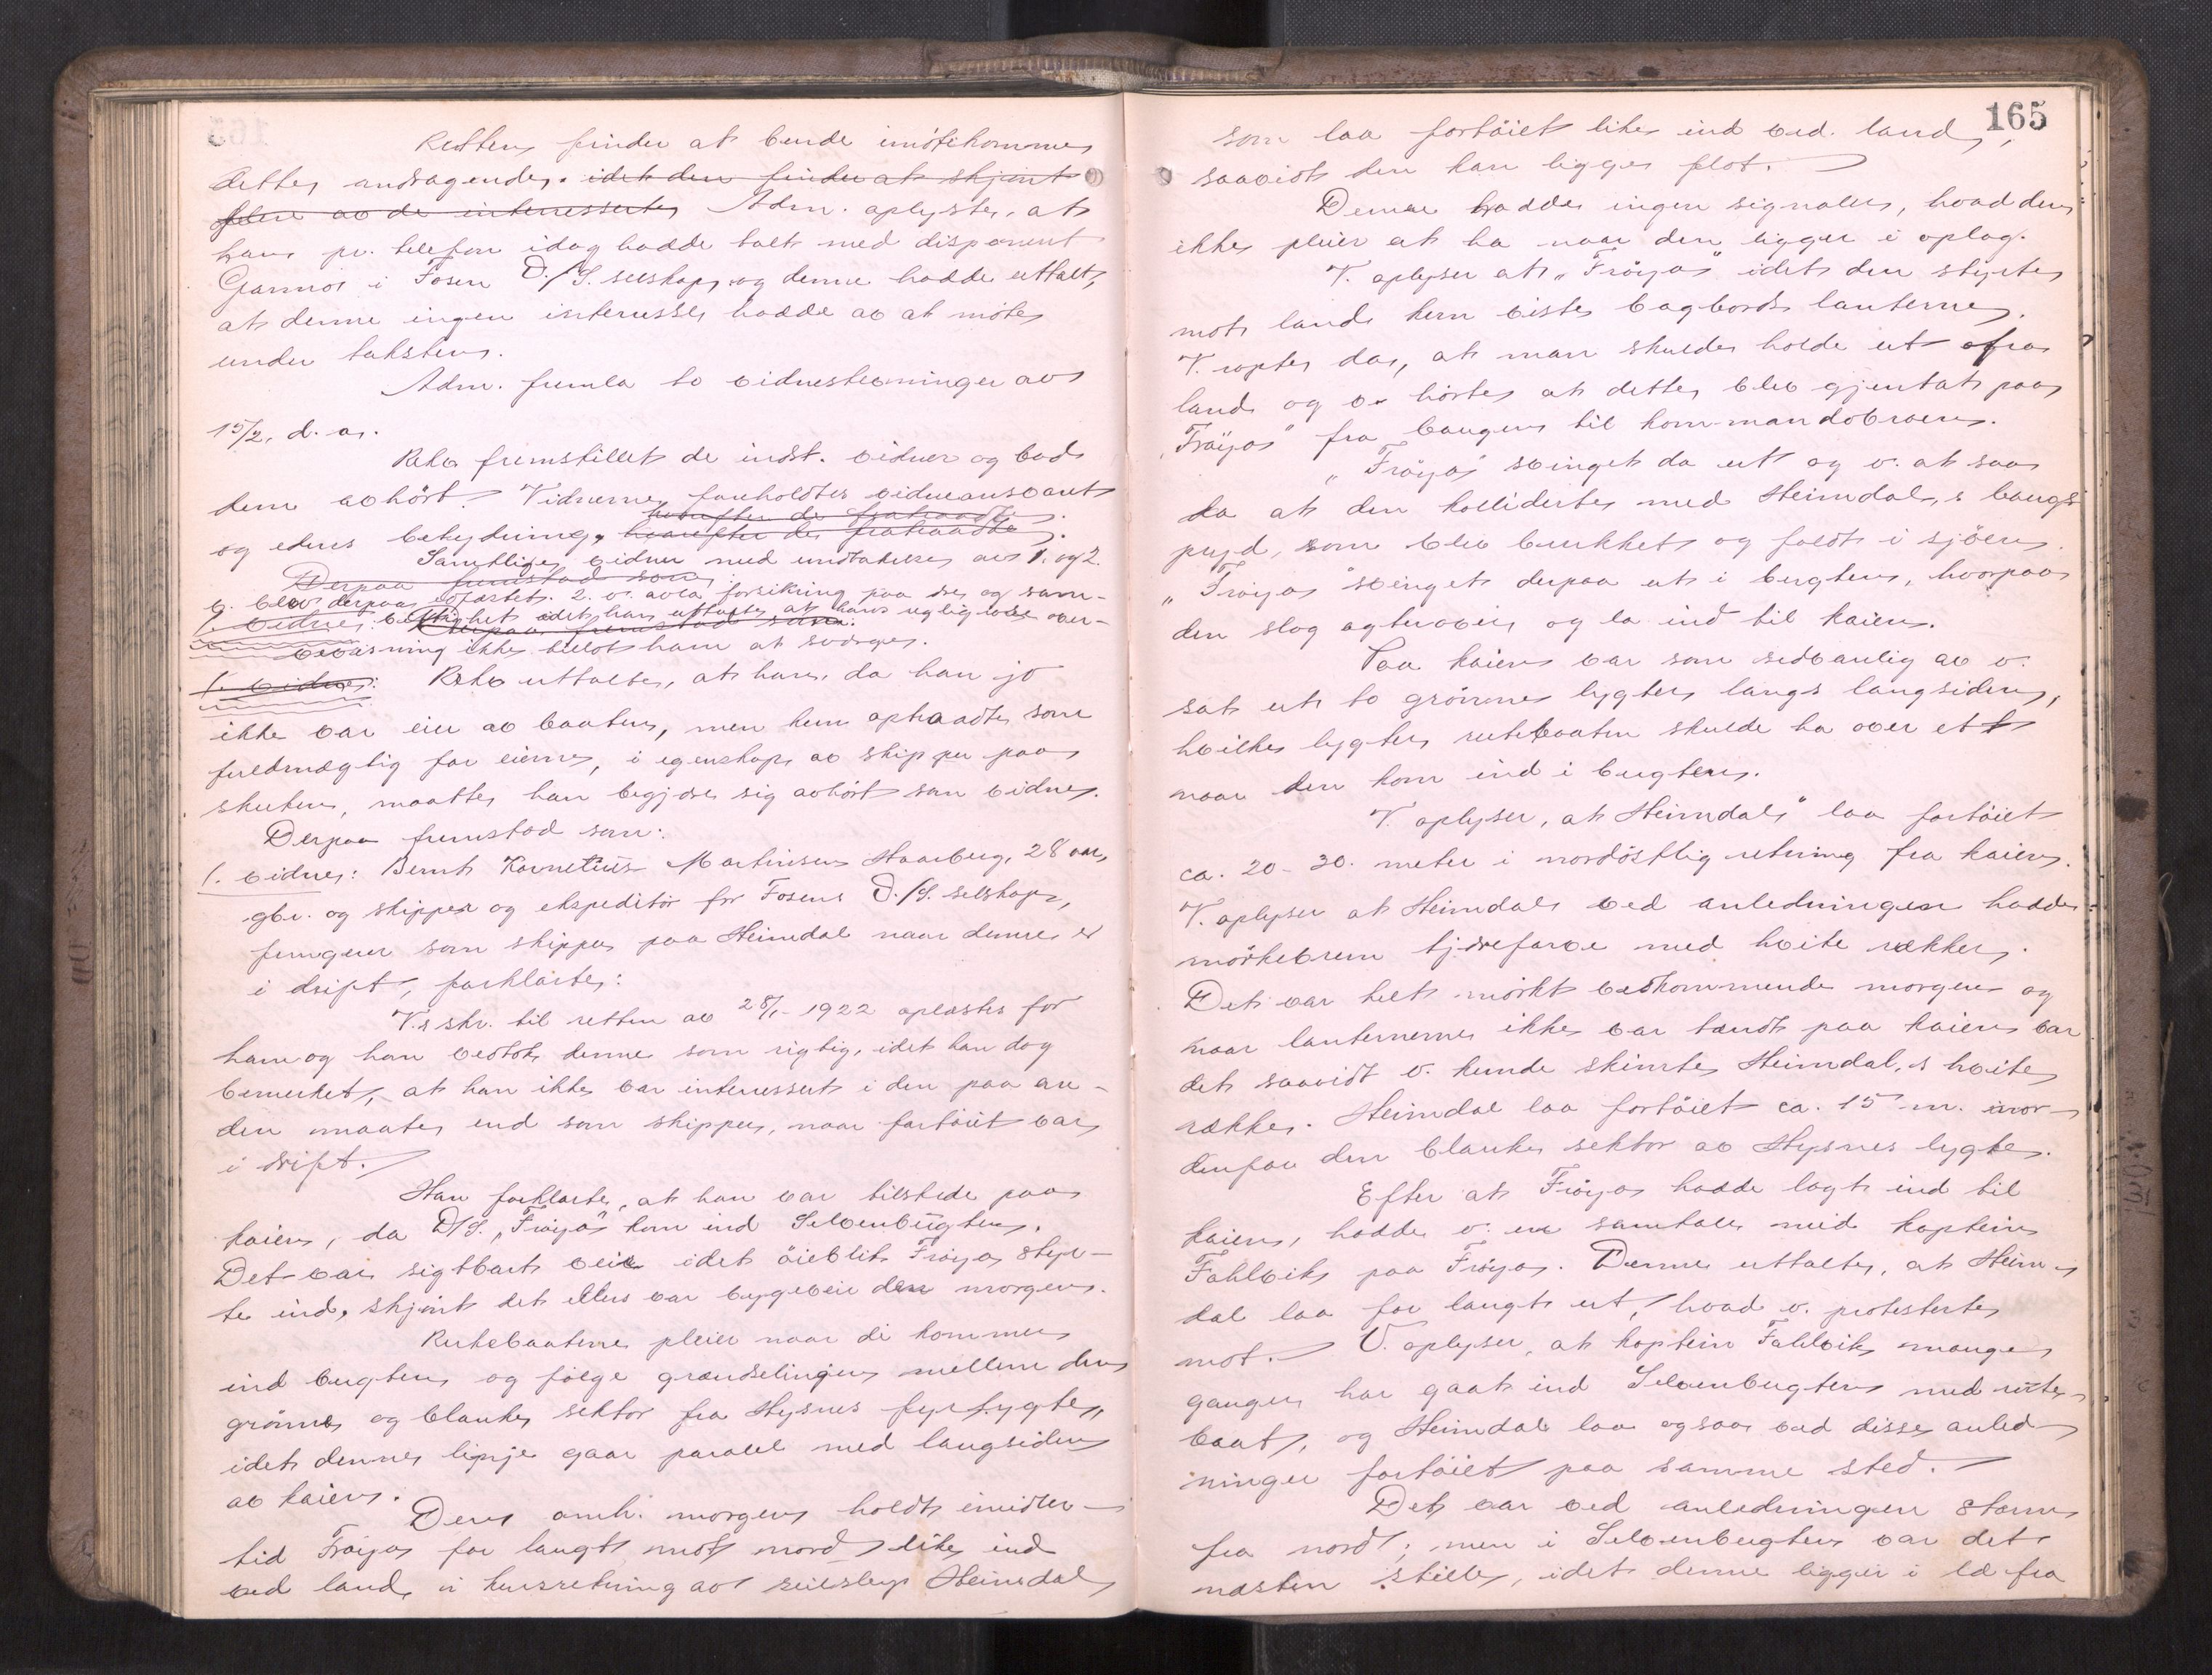 Retten finder at burde imøtekomme
dette andragende. idet den finder at skjønt
flere av de interesserte Adm. oplyste, at
han pr. telefon idag hadde talt med disponent
i Fosen D./S. selskap, og denne hadde uttalt,
at denne ingen interesse hadde av at møte
under taksten.
Adm. fremla to vidnestevninger av
15/2, d. a.
Rekv. fremstillet de indst. vidner og bad
dem avhørt. Vidnerne foreholdtes vidneansvaret
hvorefter de fratraadte.
og edens betydning, hvorefter de fratraadte.
Samtlige vidner med undtakelse av 1. og 2.
Derpaa fremstod som:
v. blev derpaa edfæstet. 2. v. avla forsikring paa ære og sam-
1. vidne: vittighet idet han uttalte at hans religiøse over-
Derpaa fremstod som:
bevisning ikke tillot ham at sværge.
1. vidne: Rekv. uttalte, at han, da han jo
ikke var eier av baaten, men kun optraadte som
fuldmægtig for eierne, i egenskap av skipper paa
skuten, maatte han begjære sig avhørt som vidne.
Derpaa fremstod som:
1. vidne: Bernt Kornelius Martinsen Haarberg, 28 aar,
gbr. og skipper og ekspeditør for Fosens D./S. selskap,
fungerer som skipper paa Heimdal naar denne er
i drift, forklarte:
V.s skr. til retten av 28/1-1922 oplæstes for
ham og han vedtok denne som rigtig, idet han dog
bemerket, at han ikke var interessert i den paa an-
den maate, end som skipper, naar fartøiet var
i drift.
Han forklarte, at han var tilstede paa
kaien, da D/S. „Frøya” kom ind Selvenbugten.
Det var sigtbart veir idet øieblik Frøya styr-
te ind, skjønt det ellers var bygeveir den morgen.
Rutebaatene pleier naar de kommer
ind bugten og følge grændselinjen mellem den
grønne og blanke sektor fra Hysnes fyrlygte,
idet dennes linje gaar paralel med langsiden
av kaien.
Den omh. morgen holdt imidler-
tid Frøya for langt mot nord like ind
ved land, i kursretning av seilskip Heimdal
165
som laa fortøiet like ind ved land,
saavidt den kan ligge flot.
Denne hadde ingen signaler, hvad den
ikke pleier at ha naar den ligger i oplag.
V. oplyser at „Frøya” idet den styrte
mot land kun viste bagbords lanterne.
V. ropte da, at man skulde holde ut fra
land og v. hørte at dette blev gjentat paa
„Frøya” fra baugen til kommandobroen.
„Frøya” svinget da ut og v. at saa
da at den kolliderte med Heimdal,s baug-
spyd, som blev brukket og faldt i sjøen.
„Frøya” svinget derpaa ut i bugten, hvorpaa
den slog agterover og la ind til kaien.
Paa kaien var som sedvanlig av v.
sat ut to grønne lygter langs langsiden,
hvilke lygter rutebaaten skulde ha over ett
naar den kom ind i bugten.
V. oplyser, at Heimdal” laa fortøiet
ca. 20-30 meter i nordøstlig retning fra kaien.
V. oplyser at Heimdal ved anledningen hadde
mørkebrun tjærefarve med hvite rækker.
Det var helt mørkt vedkommende morgen og
naar lanternerne ikke var tændt paa kaien var
det saavidt v. kunde skimte Heimdal,s hvite
rækker. Heimdal laa fortøiet ca. 15 m. nor-
denfor den blanke sektor av Hysnes lygte.
Efter at Frøya hadde lagt ind til
kaien, hadde v. en samtale med kaptein
Fahlvik paa Frøya. Denne uttalte, at Heim-
dal laa for langt ut, hvad v. protesterte
mot. V. oplyser, at kaptein Fahlvik mange
ganger har gaat ind Selvenbugten med rute-
baat, og Heimdal laa ogsaa ved disse anled-
ninger fortøiet paa samme sted.
Det var ved anledningen storm
fra nord; men i Selvenbugten var det
næsten stille, idet denne ligger i læ fra